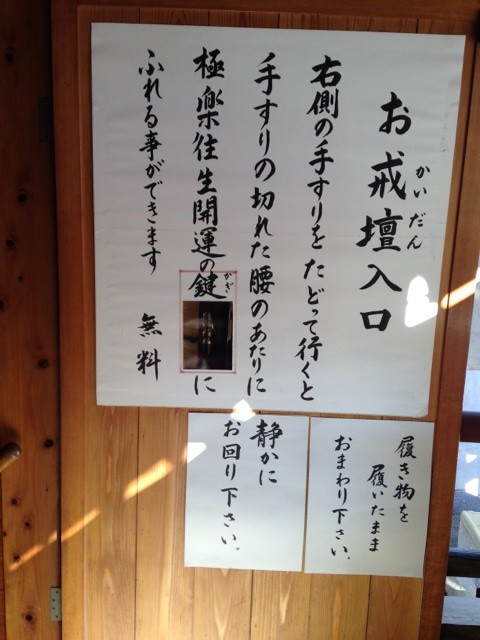 お戒壇入口
かいだん
右側の手すりをたどって行くと
手すりの切れた腰のあたりに
極楽往生開運の鍵に
かぎ
ふれる事ができます　無料
履き物を
履いたまま
おまわり下さい。
静かに
お回り下さい。